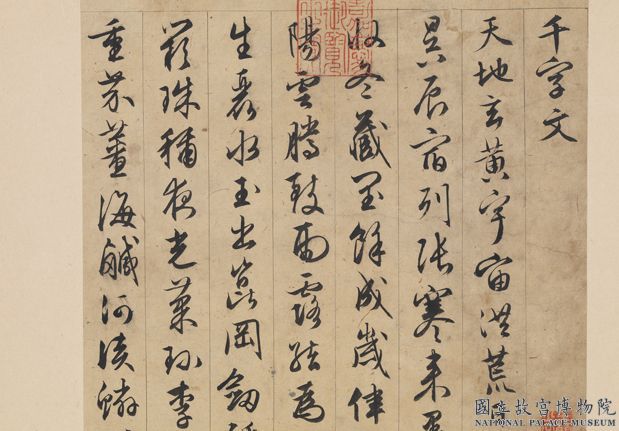 千字文
天地玄黃宇宙洪荒
昃辰宿列張寒來暑
收冬藏閏餘成歲律
陽雲騰致雨露結為
生麗水玉出崑岡劍
闕珠稱夜光菓珍李
重芥薑海鹹河淡鱗
國立故宮博物院
NATIONAL PALACE MUSEUM